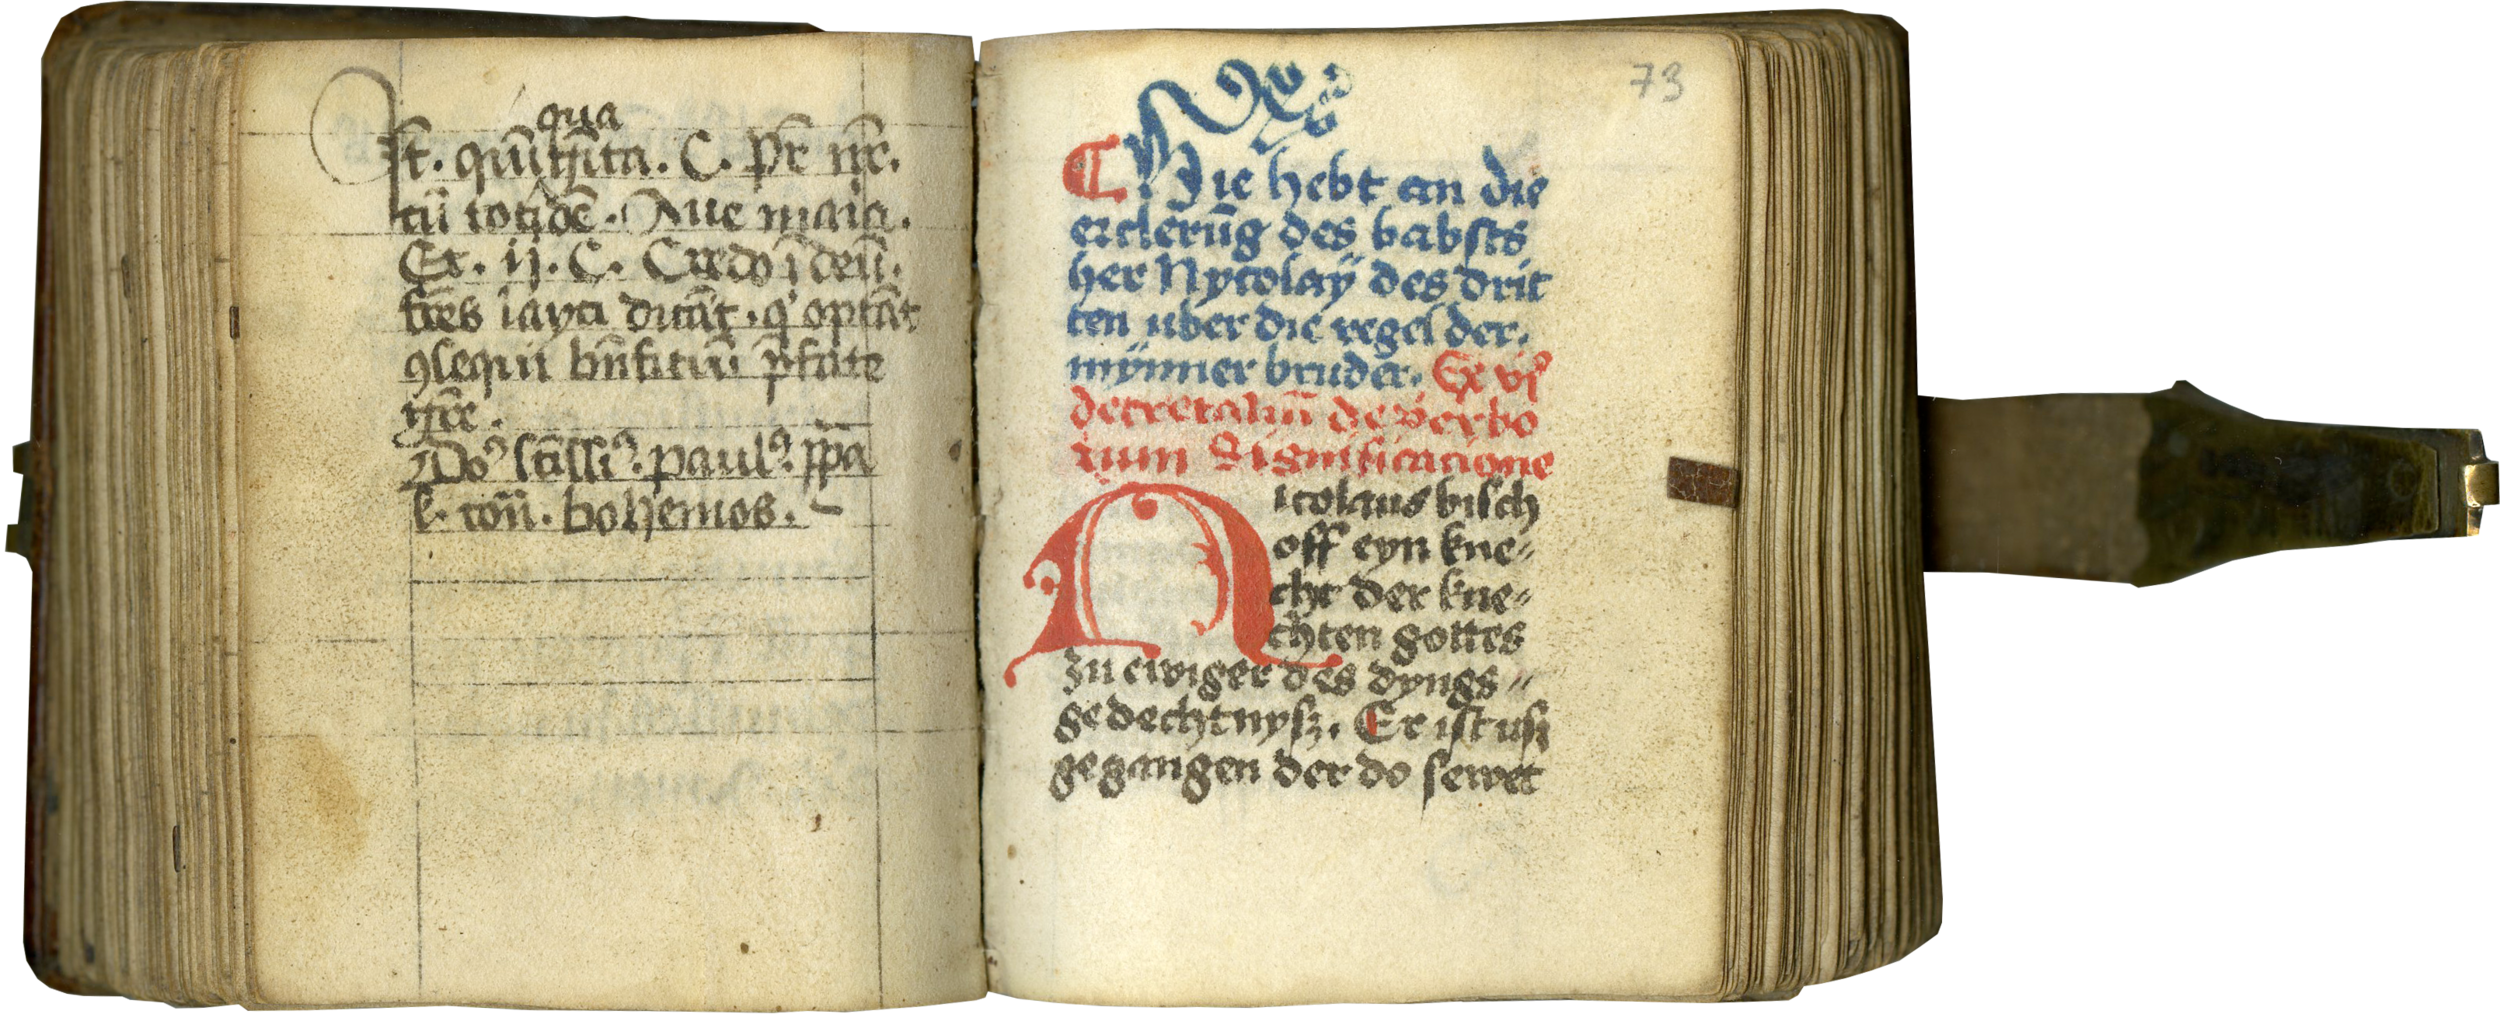 qua
st. quīgīta. C. pr̄ nr̄.
cū totidē. Aue maia.
Ex. ij. C. Credo ī deū.
fr̄es layci dicāt. q' optāt
ꝯsequi bn̄ficiū p̄fate
Do⁹ scīssi⁹. paul⁹. pp̄a
bohemos.
73
Hie hebt an die
erclerūg des babsts
her Nycolaÿ des drit
ten uber die regel der.
mynner bruder. Ex vi⁰
decretaliū de verbo
rum Significacione
Nicolaus bisch
off eyn kne⸗
cht der kne⸗
chten gottes
zu ewiger des dyngs⸗
gedechtnysz. Er ist usz
gegangen der do sewet